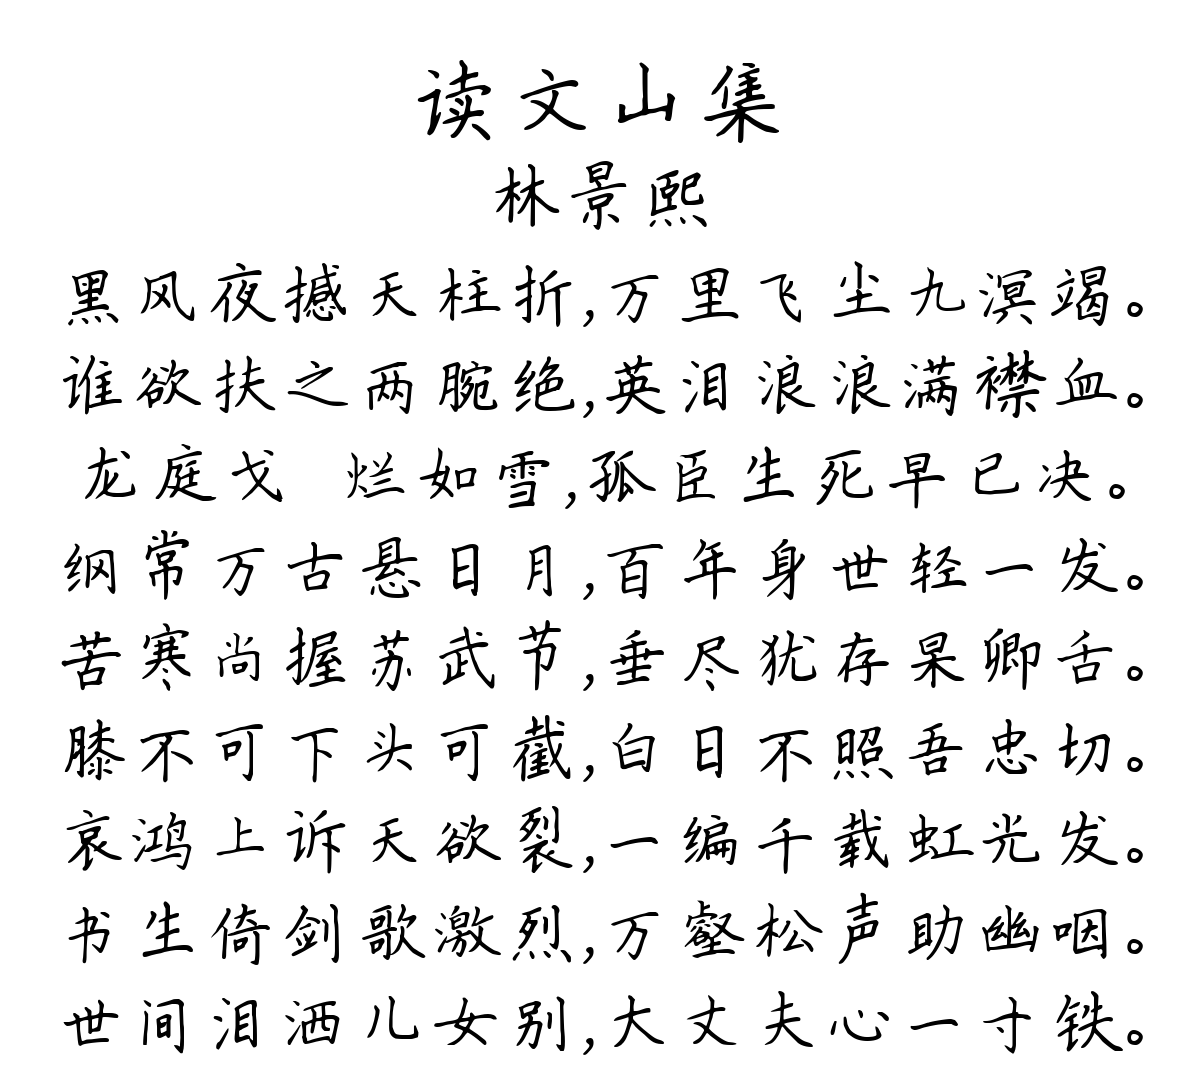 读文山集
林景熙
黑风夜撼天柱折,万里飞尘九溟竭。
谁欲扶之两腕绝,英泪浪浪满襟血。
龙庭戈 烂如雪,孤臣生死早已决。
纲常万古悬日月,百年身世轻一发。
苦寒尚握苏武节,垂尽犹存杲卿舌。
膝不可下头可截,白日不照吾忠切。
哀鸿上诉天欲裂,一编千载虹光发。
书生倚剑歌激烈,万壑松声助幽咽。
世间泪洒儿女别,大丈夫心一寸铁。